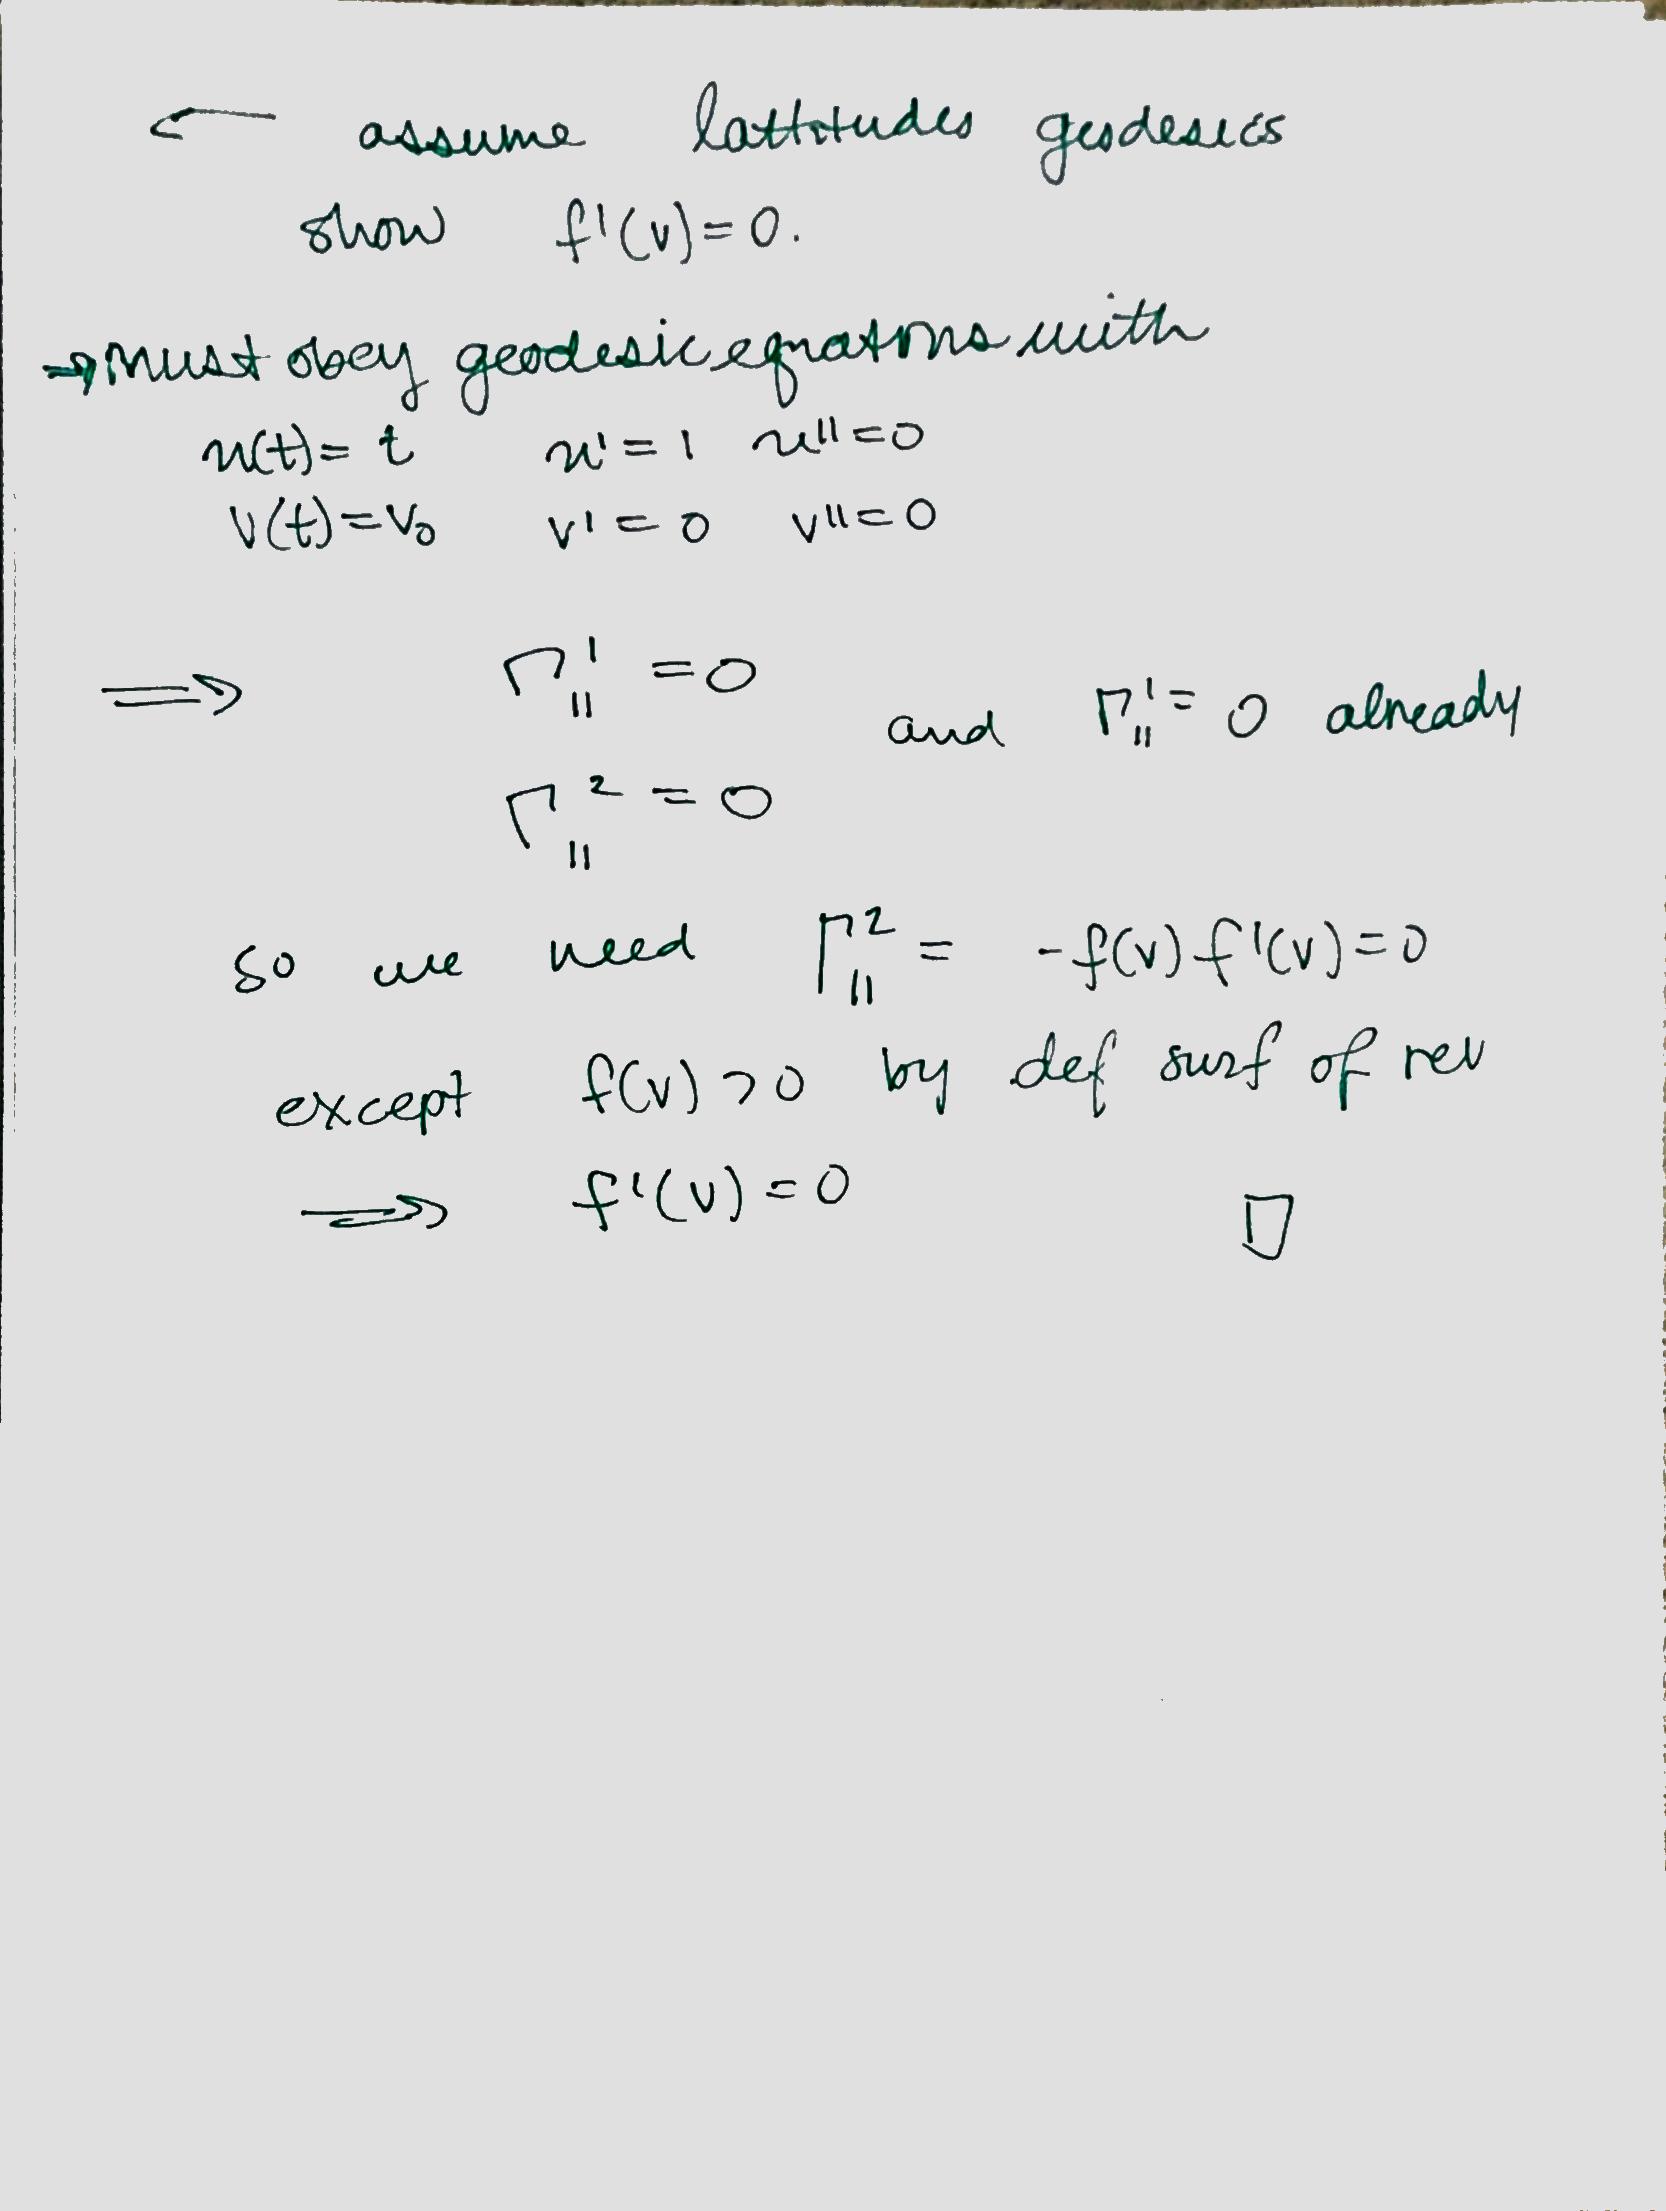 ← assume lattitudes geodesics
show f'(v) = 0.
→ must obey geodesic equations with
u(t) = t u' = 1 u'' = 0
v(t) = v₀ v' = 0 v'' = 0
⟹ Γ¹₁₁ = 0 and Γ¹₁₁ = 0 already
Γ²₁₁ = 0
so we need Γ²₁₁ = -f(v) f'(v) = 0
except f(v) > 0 by def surf of rev
⟹ f'(v) = 0 □